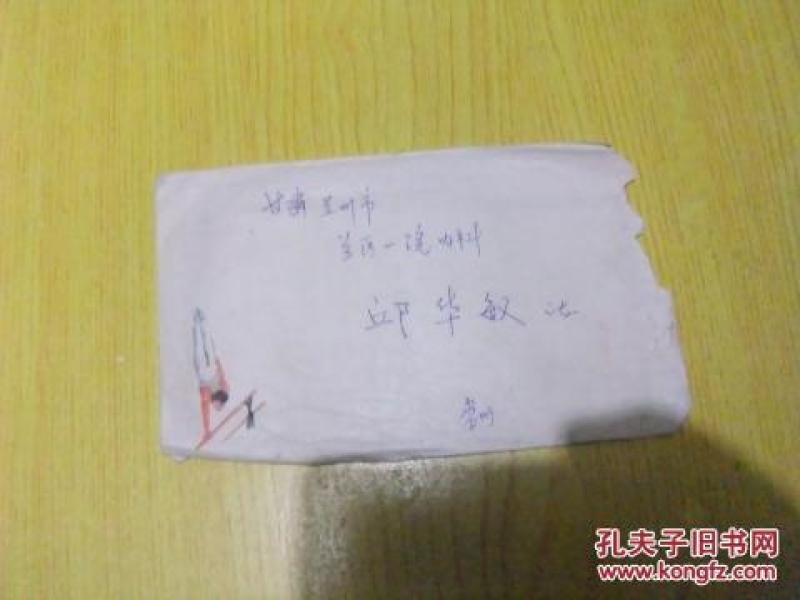 甘肃兰州市
兰医一院内科
邱华敏
常州
孔夫子旧书网
www.kongfz.com